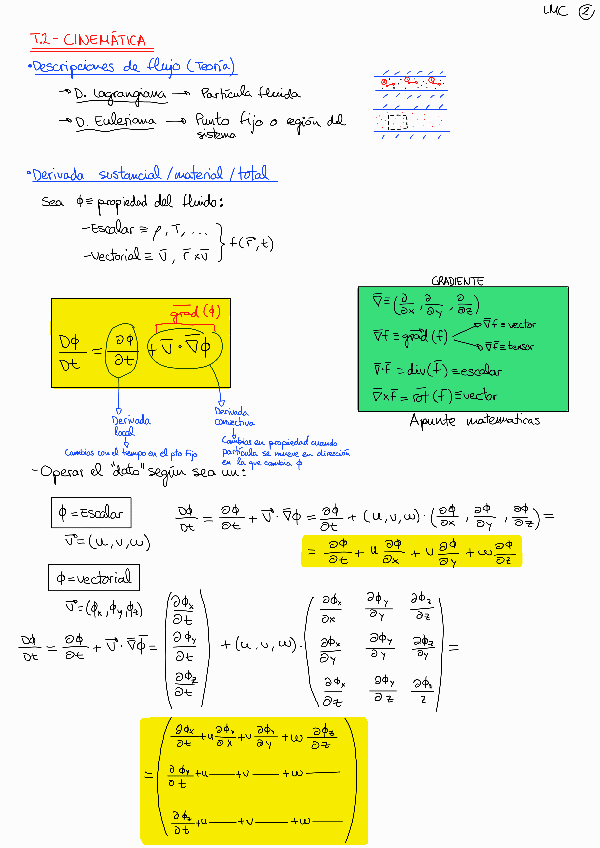 LMC 2
T.2 - CINEMÁTICA
• Descripciones de flujo (Teoría)
→ D. Lagrangiana → Partícula fluida
→ D. Euleriana → Punto fijo o región del
sistema
• Derivada sustancial / material / total
Sea ϕ ≡ propiedad del fluido:
- Escalar ≡ ρ, T, ...
- Vectorial ≡ v̅, r̅ x v̅ } f(r̅, t)
grad (ϕ)
Dϕ/Dt = ∂ϕ/∂t + v̅ · ∇̅ϕ
Derivada
local
Cambios con el tiempo en el pto fijo
Derivada
convectiva
Cambios en propiedad cuando
partícula se mueve en dirección
en la que cambia ϕ
GRADIENTE
∇̅ ≡ (∂/∂x, ∂/∂y, ∂/∂z)
∇̅f ≡ grad(f) → ∇̅f ≡ vector
→ ∇̅f̅ ≡ tensor
∇̅·f̅ = div(f̅) ≡ escalar
∇̅xf̅ = rot(f̅) ≡ vector
Apunte matemáticas
- Operar el "dato" según sea un:
ϕ = Escalar
v⃗ = (u, v, w)
Dϕ/Dt = ∂ϕ/∂t + v⃗ · ∇̅ϕ = ∂ϕ/∂t + (u, v, w) · (∂ϕ/∂x, ∂ϕ/∂y, ∂ϕ/∂z) =
= ∂ϕ/∂t + u ∂ϕ/∂x + v ∂ϕ/∂y + w ∂ϕ/∂z
ϕ = vectorial
v⃗ = (ϕx, ϕy, ϕz)
Dϕ/Dt = ∂ϕ/∂t + v⃗ · ∇̅ϕ̅ = (∂ϕx/∂t ∂ϕy/∂t ∂ϕz/∂t) + (u, v, w) · (∂ϕx/∂x ∂ϕy/∂x ∂ϕz/∂x
∂ϕx/∂y ∂ϕy/∂y ∂ϕz/∂y
∂ϕx/∂t ∂ϕy/∂z ∂ϕz/z) =
= (∂ϕx/∂t + u ∂ϕx/∂x + v ∂ϕx/∂y + w ∂ϕx/∂z
∂ϕy/∂t + u — + v — + w —
∂ϕz/∂t + u — + v — + w —)